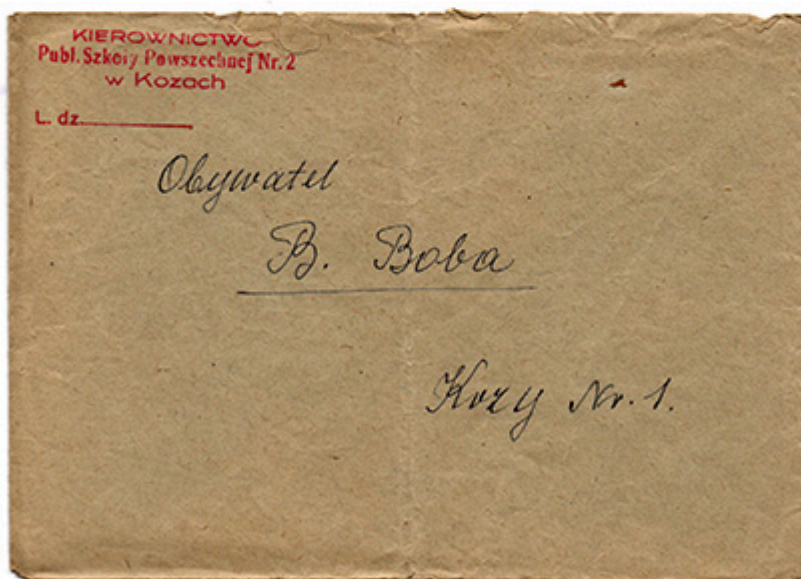 KIEROWNICTWO
Publ. Szkoły Powszechnej Nr. 2
w Kozach
L. dz.
Obywatel
B. Boba
Kozy Nr. 1.